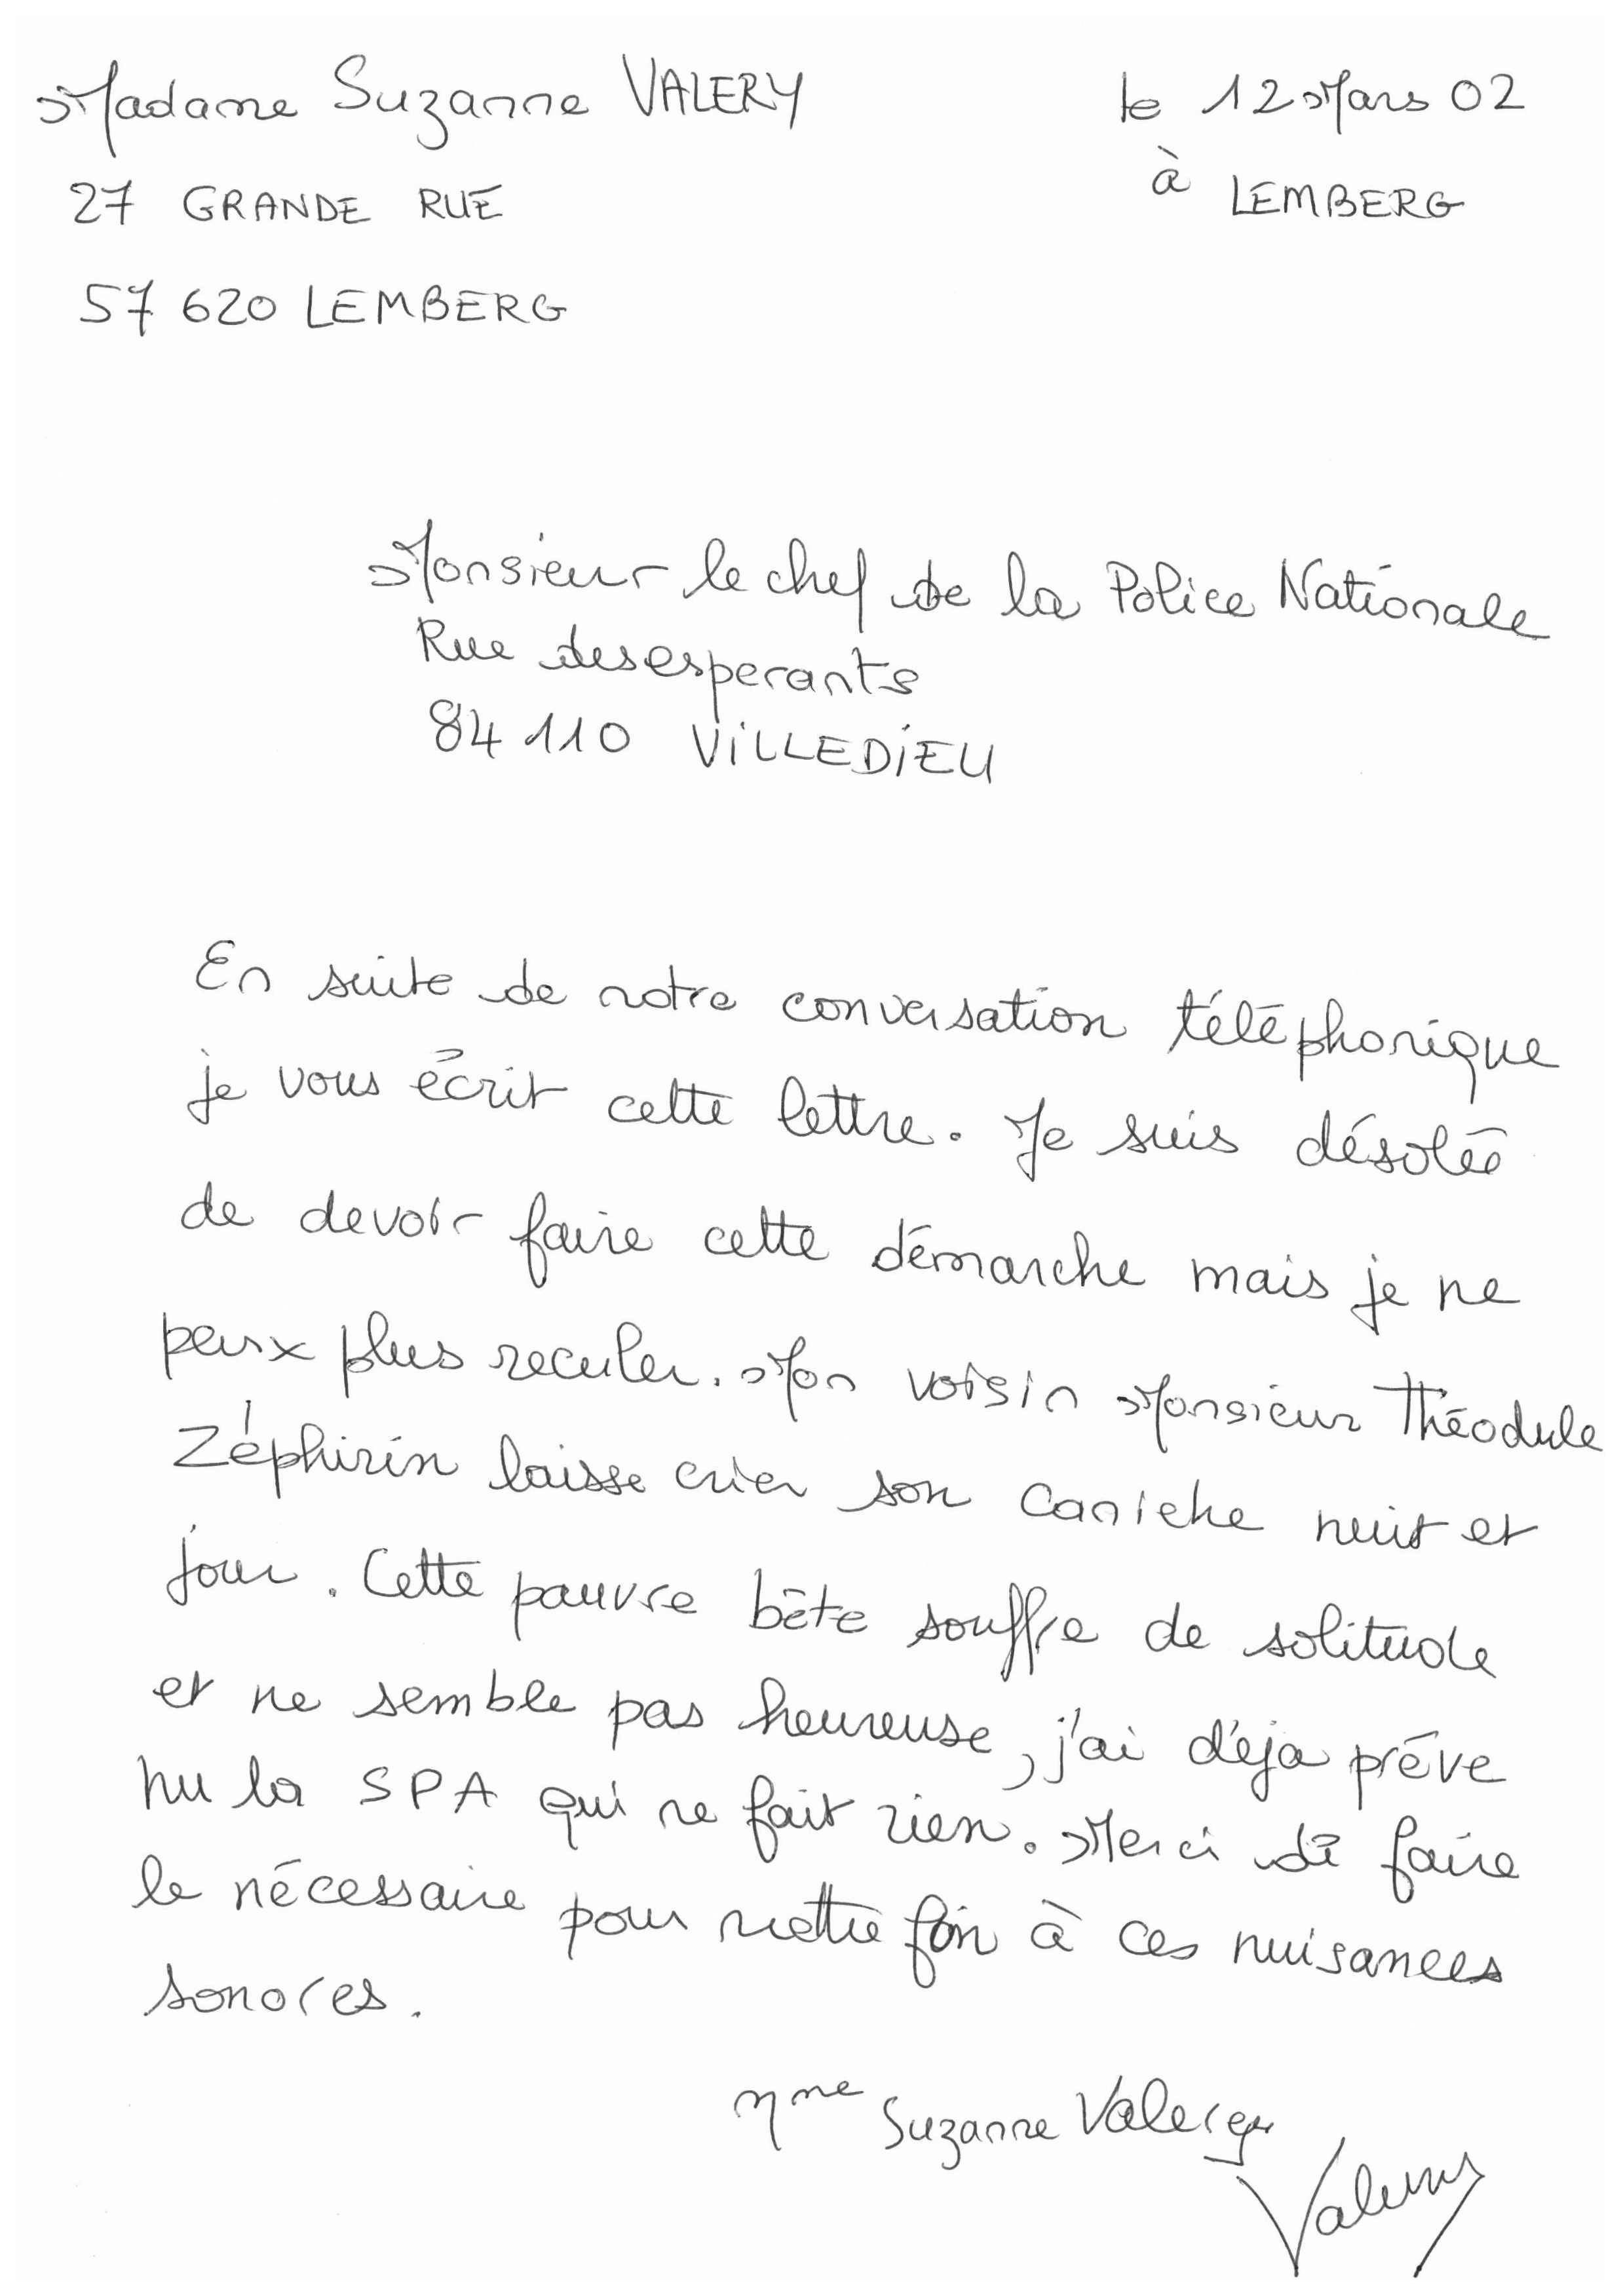 Madame Suzanne VALERY
le 12 Mars 02
à LEMBERG
27 GRANDE RUE
57 620 LEMBERG
Monsieur le chef de la Police Nationale
Rue desesperants
84 110 ViLLEDiEU
En suite de notre conversation téléphonique
je vous écrit cette lettre. Je suis désolée
de devoir faire cette démarche mais je ne
peux plus reculer. Mon voisin Monsieur Théodule
Zéphirin laisse crier son caniche nuit et
jour. Cette pauvre bête souffre de solitude
et ne semble pas heureuse, j'ai déja préve
nu la SPA qui ne fait rien. Merci de faire
le nécessaire pour mettre fin à ces nuisances
sonores.
Mme Suzanne Valery
Valery